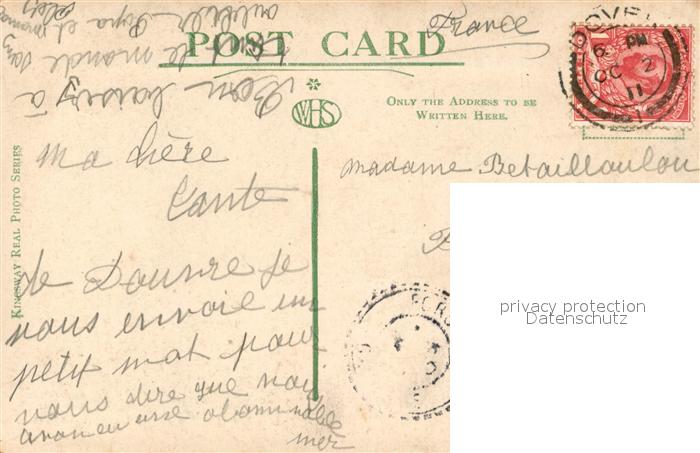 France
POST CARD
WHS
ONLY THE ADDRESS TO BE
WRITTEN HERE.
DOVE
6 PM
OC 2
11
KINGSWAY REAL PHOTO SERIES
Bon baiser à
le monde
et
Ma chère
Tante
De Douvre je
vous envoie un
petit mot pour
vous dire que nous
avon eu une abominable
mer
Madame Betailloulou
privacy protection
Datenschutz